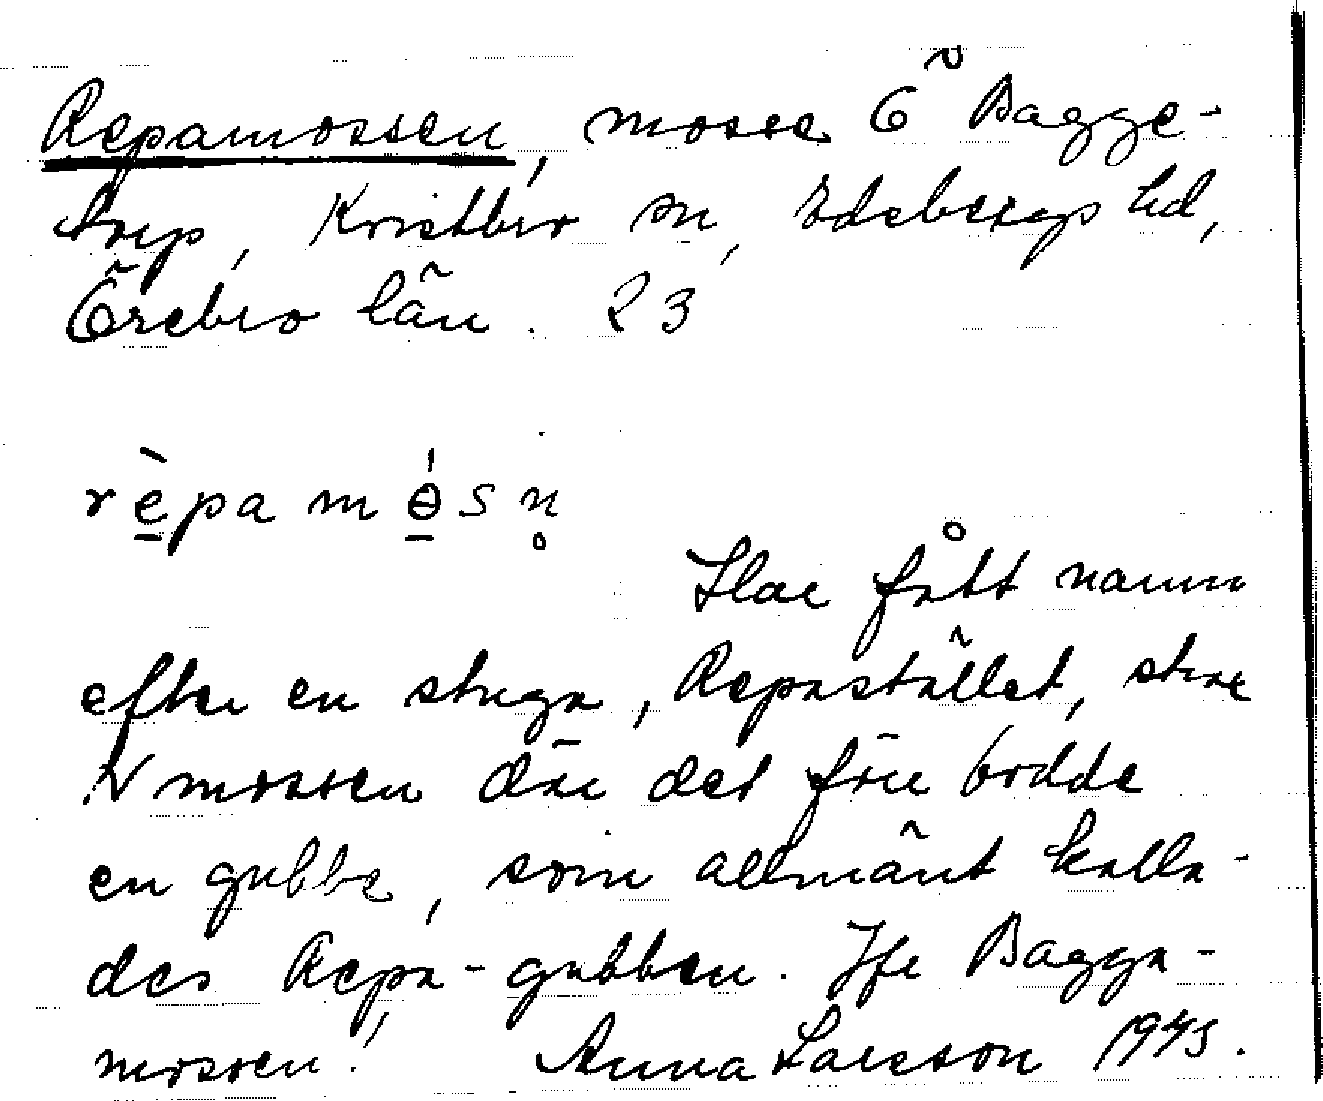 Repamossen, mosse Ö Bagge-
torp, Kristbro sn, Edsbergs hd,
Örebro län. 23
rèpamósn̥
Har fått namn
efter en stuga, Repastället, strax
N mossen där det förr bodde
en gubbe, som allmänt kalla-
des Repa-gubben. Jfr Bagga-
mossen! Anna Larsson 1945.